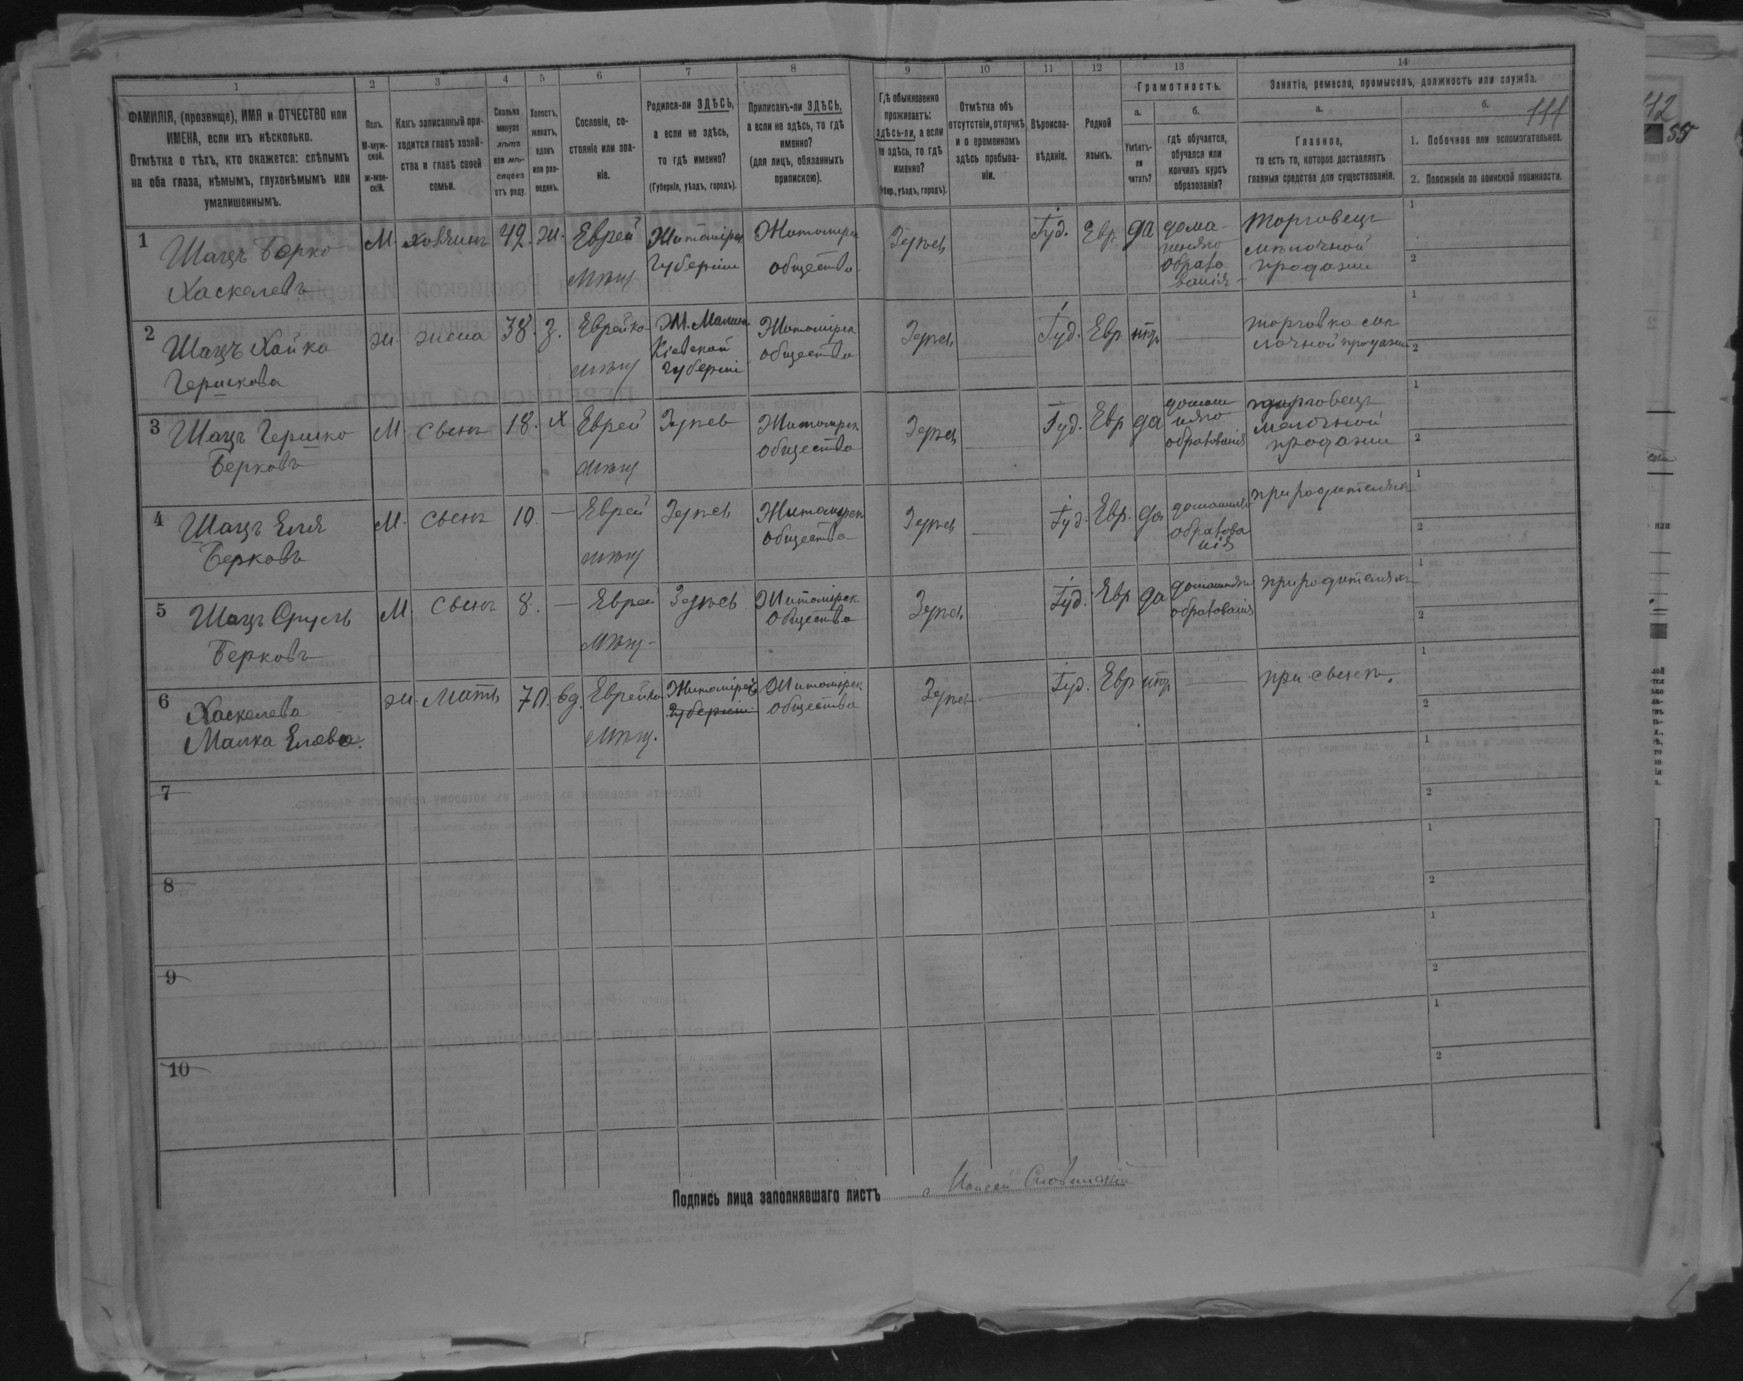 1 2 3 4 5 6 7 8 9 10 11 12 13 14
ФАМИЛІЯ, (прозвище), ИМЯ и ОТЧЕСТВО или
ИМЕНА, если ихъ нѣсколько.
Отмѣтка о тѣхъ, кто окажется: слѣпымъ
на оба глаза, нѣмымъ, глухонѣмымъ или
умалишеннымъ.
Полъ.
М-муж-
ской.
ж-жен-
скій.
Какъ записанный при-
ходится главѣ хозяй-
ства и главѣ своей
семьи.
Сколько
минуло
лѣтъ
или мѣ-
сяцевъ
отъ роду.
Холостъ,
женатъ,
вдовъ
или раз-
веденъ.
Сословіе, со-
стояніе или зва-
ніе.
Родился-ли ЗДѢСЬ,
а если не здѣсь,
то гдѣ именно?
(Губернія, уѣздъ, городъ).
Приписанъ-ли ЗДѢСЬ,
а если не здѣсь, то гдѣ
именно?
(для лицъ, обязанныхъ
припискою).
Гдѣ обыкновенно
проживаетъ:
здѣсь-ли, а если
не здѣсь, то гдѣ
именно?
(Губер., уѣздъ, городъ).
Отмѣтка объ
отсутствіи, отлучкѣ
и о временномъ
здѣсь пребыва-
ніи.
Вѣроиспо-
вѣданіе.
Родной
языкъ.
Грамотность.
а.
Умѣетъ-
ли
читать?
б.
гдѣ обучается,
обучался или
кончилъ курсъ
образованія?
Занятіе, ремесло, промыселъ, должность или служба.
а.
Главное,
то есть то, которое доставляетъ
главныя средства для существованія.
б.
1. Побочное или вспомогательное.
2. Положеніе по воинской повинности.
1 Шацъ Берко
Хаскелевъ
М хозяинъ 42. ж. Еврей
мѣщ
Житомірск
Губерніи
Житомірск
общества
Здѣсь Іуд. Евр. да
дома-
шняго
образо
ванія
Торговецъ
мелочной
продажи
2 Шацъ Хайка
Гершкова
ж. жена 38. з. Еврейка
мѣщ
М. Малин
Кіевской
губерніи
Житомірск
общества
Здѣсь Іуд. Евр нѣт
торговка ме
лочной продажи
3 Шацъ Гершко
Берковъ
М сынъ 18. х Еврей
мѣщ
Здѣсь
Житомірск
общества
Здѣсь Іуд. Евр да
домаш
няго
образованія
торговецъ
мелочной
продажи
4 Шацъ Еля
Берковъ
М. сынъ 10. — Еврей
мѣщ
Здѣсь
Житомірск
общества
Здѣсь Іуд. Евр. да
домашняго
образова
нія
при родителяхъ
5 Шацъ Сруль
Берковъ
М сынъ 8. — Еврей
мѣщ.
Здѣсь
Житомірск
общества
Здѣсь Іуд. Евр да
домашняго
образованія
при родителяхъ
6 Хаскелева
Малка Елева.
ж. мать 70. вд. Еврейка
мѣщ.
Житомірск
губерніи
Житомірск
общества
Здѣсь Іуд. Евр нѣт
при сынѣ.
7
8
9
10
Подпись лица заполнявшаго листъ